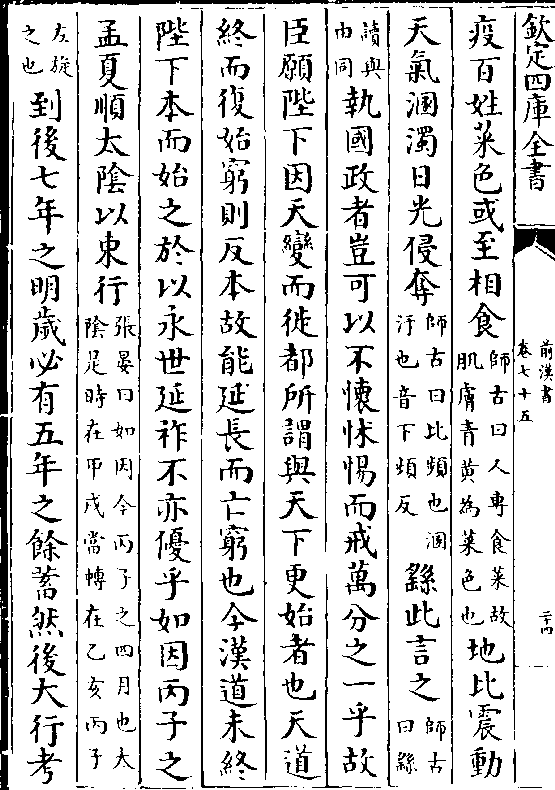 欽定四庫全書
前漢書
卷七十五
二十四
疫百姓菜色或至相食師古曰人專食菜故肌膚青黃為菜色也地比震動
天氣溷濁日光侵奪師古曰比頻也溷汙也音下頻反繇此言之師古曰繇
讀與由同執國政者豈可以不懷怵惕而戒萬分之一乎故
臣願陛下因天變而徙都所謂與天下更始者也天道
終而復始窮則反本故能延長而亡窮也今漢道未終
陛下本而始之於以永世延祚不亦優乎如因丙子之
孟夏順太陰以東行張晏曰如因今丙子之四月也太陰是時在甲戌當轉在乙亥丙子
左旋之也到後七年之明歲必有五年之餘蓄然後大行考